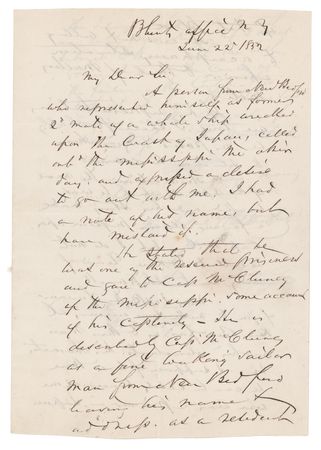 Blunts office N Y
June 22d 1852
My Dear Sir
A person from New Bedford
who represented himself as former
2d mate of a whale ship wrecked
upon the Coast of Japan, called
on bd the Mississippi the other
day and expressed a desire
to go out with me. I had
a note of his name, but
have mislaid it.
He states that he
was one of the rescued prisoners
and gave to Capt McCluney
of the Mississippi some account
of his captivity — He is
described by Capt McCluney
as a fine looking sailor
man from New Bedford
leaving his name &
address as a resident